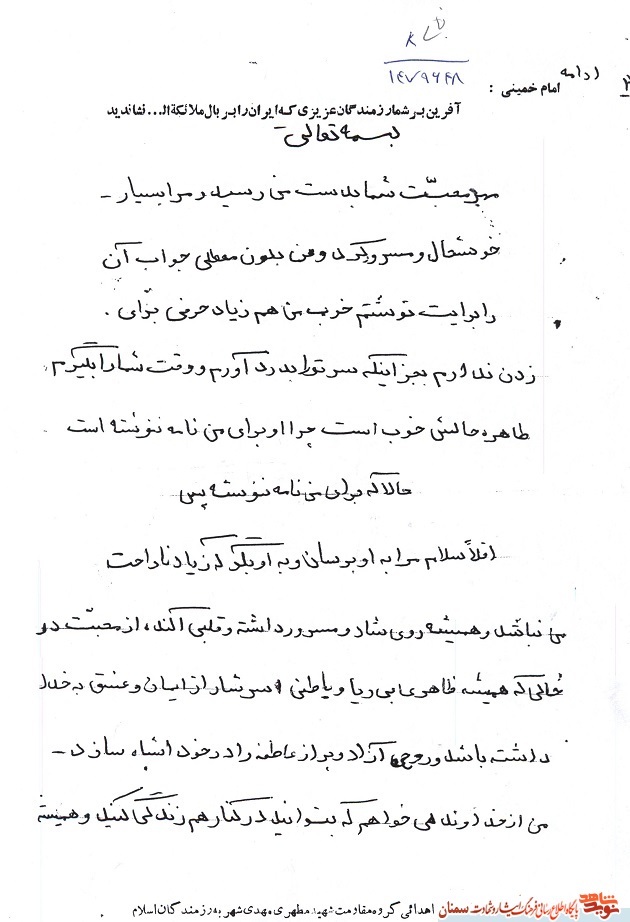 ۱۴۷۹۶۴۸
ادامه
امام خمینی :
آفرین بر شما رزمندگان عزیزی که ایران را بر بال ملائکة الـ... نشاندید
بسمه تعالی
محبّت شما بدست من رسید و مرا بسیار -
خوشحال و مسرور کرد و من بدون معطلی جواب آن
را برایت نوشتم خوب من هم زیاد حرفی برای .
زدن ندارم بجز اینکه سر تو را بدرد آورم و وقت شما را بگیرم
طاهره حالش خوب است چرا او برای من نامه ننوشته است
حالا که برای من نامه ننوشته پس
اقلاً سلام مرا به او برسان و به او بگو که زیاد ناراحت
می نباشد و همیشه روی شاد و مسرور داشته و قلبی آکنده از محبت در
حالی که همیشه ظاهری بی ریا و باطنی سرشار از ایمان و عشق به خدا
داشته باشد و روحی آزاد و پر از عاطفه را در خود انشاء سازد -
من از خداوند می خواهم که بتوانید در کنار هم زندگی کنید و همیشه
نوید شاهد
پایگاه اطلاع رسانی فرهنگ ایثار و شهادت سمنان
اهدائی گروه مقاومت شهید مطهری مهدی شهر به رزمندگان اسلام